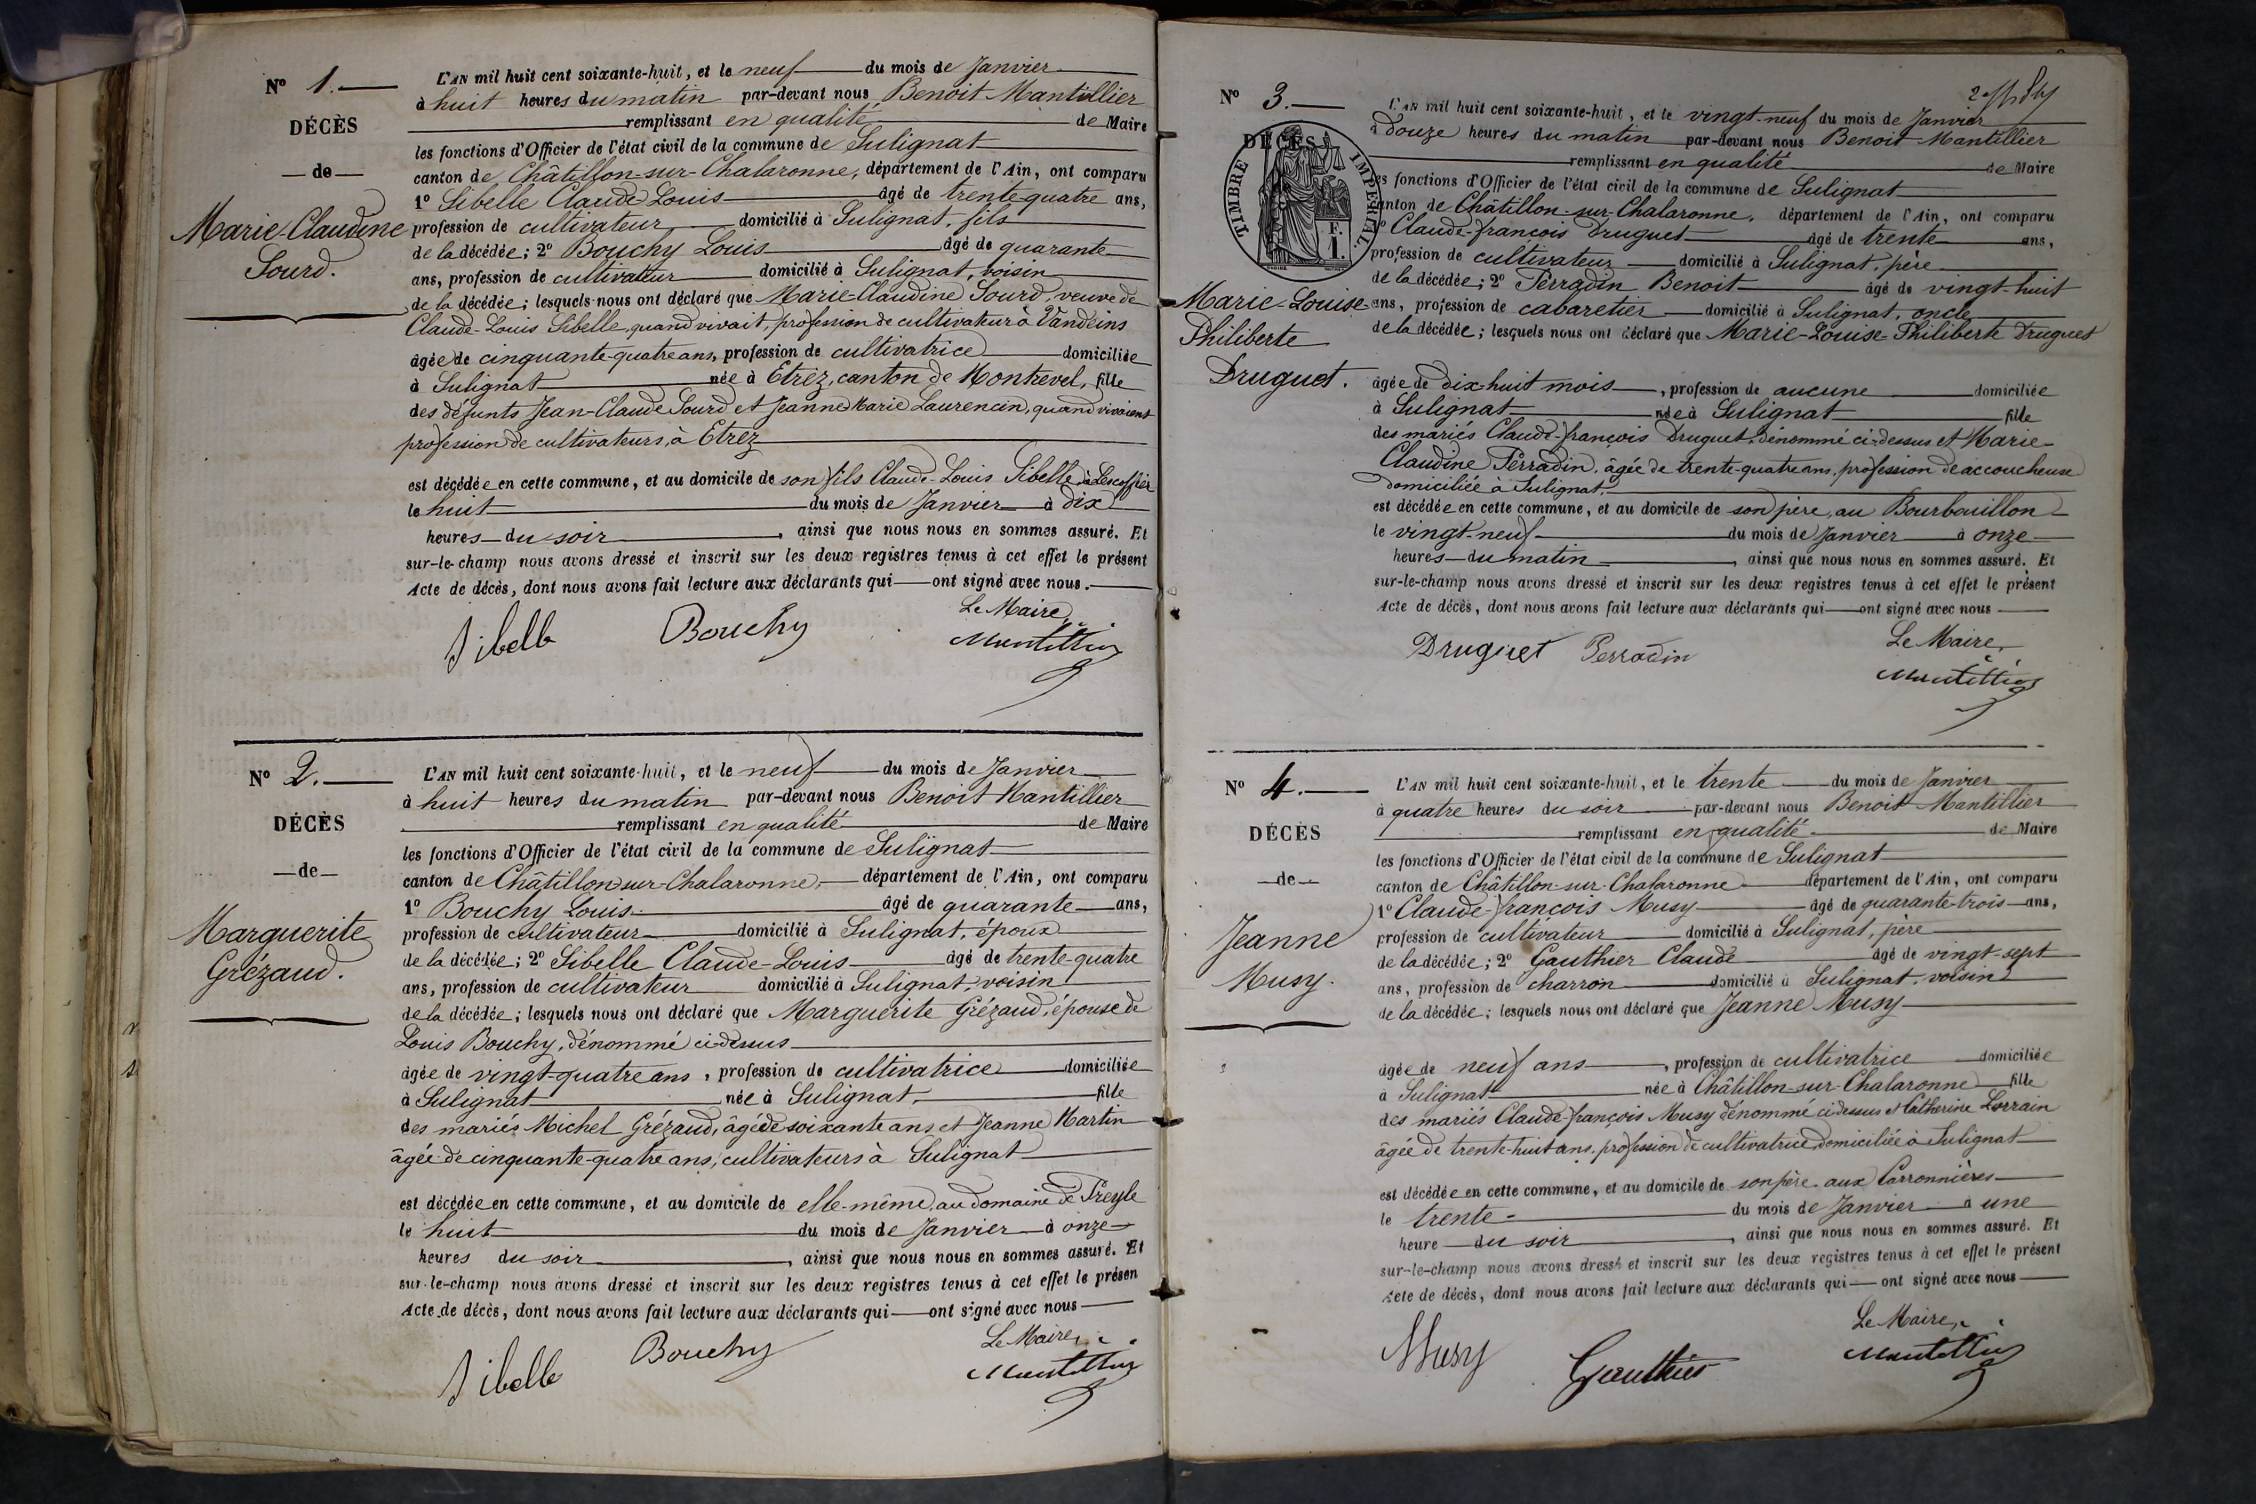 N° 1.
DÉCÈS
de
Marie-Claudine
Sourd.
L'AN mil huit cent soixante-huit, et le neuf du mois de Janvier
à huit heures du matin par-devant nous Benoit Mantillier
remplissant en qualité de Maire
les fonctions d'Officier de l'état civil de la commune de Sulignat
canton de Châtillon-sur-Chalaronne, département de l'Ain, ont comparu
1° Sibelle Claude-Louis âgé de trente-quatre ans,
profession de cultivateur domicilié à Sulignat, fils
de la décédée; 2° Bouchy Louis âgé de quarante
ans, profession de cultivateur domicilié à Sulignat, voisin
de la décédée; lesquels nous ont déclaré que Marie-Claudine Sourd, veuve de
Claude-Louis Sibelle, quand vivait, profession de cultivateur à Vandeins
âgée de cinquante-quatre ans, profession de cultivatrice domiciliée
à Sulignat née à Etrez, canton de Montrevel, fille
des défunts Jean-Claude Sourd et Jeanne Marie Laurencin, quand vivaient
profession de cultivateurs, à Etrez
est décédée en cette commune, et au domicile de son fils Claude-Louis Sibelle à Lescoffier
le huit du mois de Janvier à dix
heures du soir, ainsi que nous nous en sommes assuré. Et
sur-le-champ nous avons dressé et inscrit sur les deux registres tenus à cet effet le présent
Acte de décès, dont nous avons fait lecture aux déclarants qui ont signé avec nous.
Le Maire,
Sibelle Bouchy Mantillier
N° 2.
DÉCÈS
de
Marguerite
Grézaud.
L'AN mil huit cent soixante-huit, et le neuf du mois de Janvier
à huit heures du matin par-devant nous Benoit Mantillier
remplissant en qualité de Maire
les fonctions d'Officier de l'état civil de la commune de Sulignat
canton de Châtillon sur-Chalaronne, département de l'Ain, ont comparu
1° Bouchy Louis âgé de quarante ans,
profession de cultivateur domicilié à Sulignat, époux
de la décédée; 2° Sibelle Claude-Louis âgé de trente-quatre
ans, profession de cultivateur domicilié à Sulignat, voisin
de la décédée; lesquels nous ont déclaré que Marguerite Grézaud, épouse de
Louis Bouchy, dénommé ci-dessus
âgée de vingt-quatre ans, profession de cultivatrice domiciliée
à Sulignat née à Sulignat, fille
des mariés Michel Grézaud, âgé de soixante ans, et Jeanne Martin
âgée de cinquante-quatre ans, cultivateurs à Sulignat
est décédée en cette commune, et au domicile de elle-même, au domaine de Preyle
le huit du mois de Janvier à onze
heures du soir, ainsi que nous nous en sommes assuré. Et
sur-le-champ nous avons dressé et inscrit sur les deux registres tenus à cet effet le présen
Acte de décès, dont nous avons fait lecture aux déclarants qui ont signé avec nous
Le Maire,
Sibelle Bouchy Mantillier
N° 3.
DÉCÈS
TIMBRE IMPÉRIAL
F.
1.
Marie-Louise-
Philiberte
Druguet.
L'AN mil huit cent soixante-huit, et le vingt-neuf du mois de Janvier
à douze heures du matin par-devant nous Benoit Mantillier
remplissant en qualité de Maire
es fonctions d'Officier de l'état civil de la commune de Sulignat
anton de Châtillon-sur-Chalaronne, département de l'Ain, ont comparu
1° Claude-françois Druguet âgé de trente ans,
profession de cultivateur domicilié à Sulignat, père
de la décédée; 2° Perradin Benoit âgé de vingt-huit
ans, profession de cabaretier domicilié à Sulignat, oncle
de la décédée; lesquels nous ont déclaré que Marie-Louise-Philiberte Druguet
âgée de dix-huit mois, profession de aucune domiciliée
à Sulignat née à Sulignat fille
des mariés Claude-françois Druguet, dénommé ci-dessus et Marie-
Claudine Perradin, âgée de trente-quatre ans, profession de accoucheuse
domiciliée à Sulignat,
est décédée en cette commune, et au domicile de son père, au Bourbouillon
le vingt-neuf du mois de Janvier à onze
heures du matin, ainsi que nous nous en sommes assuré. Et
sur-le-champ nous avons dressé et inscrit sur les deux registres tenus à cet effet le présent
Acte de décès, dont nous avons fait lecture aux déclarants qui ont signé avec nous
Le Maire,
Druguet Perradin Mantillier
N° 4.
DÉCÈS
de
Jeanne
Musy.
L'AN mil huit cent soixante-huit, et le trente du mois de Janvier
à quatre heures du soir par-devant nous Benoit Mantillier
remplissant en qualité de Maire
les fonctions d'Officier de l'état civil de la commune de Sulignat
canton de Châtillon-sur-Chalaronne département de l'Ain, ont comparu
1° Claude-françois Musy âgé de quarante-trois ans,
profession de cultivateur domicilié à Sulignat, père
de la décédée; 2° Gauthier Claude âgé de vingt-sept
ans, profession de charron domicilié à Sulignat, voisin
de la décédée; lesquels nous ont déclaré que Jeanne Musy
âgée de neuf ans, profession de cultivatrice domiciliée
à Sulignat née à Châtillon-sur-Chalaronne fille
des mariés Claude-françois Musy dénommé ci-dessus et Catherine Lorrain
âgée de trente-huit ans, profession de cultivatrice, domiciliée à Sulignat
est décédée en cette commune, et au domicile de son père aux Carronnières
le trente du mois de Janvier à une
heure du soir, ainsi que nous nous en sommes assuré. Et
sur-le-champ nous avons dressé et inscrit sur les deux registres tenus à cet effet le présent
Acte de décès, dont nous avons fait lecture aux déclarants qui ont signé avec nous
Le Maire,
Musy Gauthier Mantillier